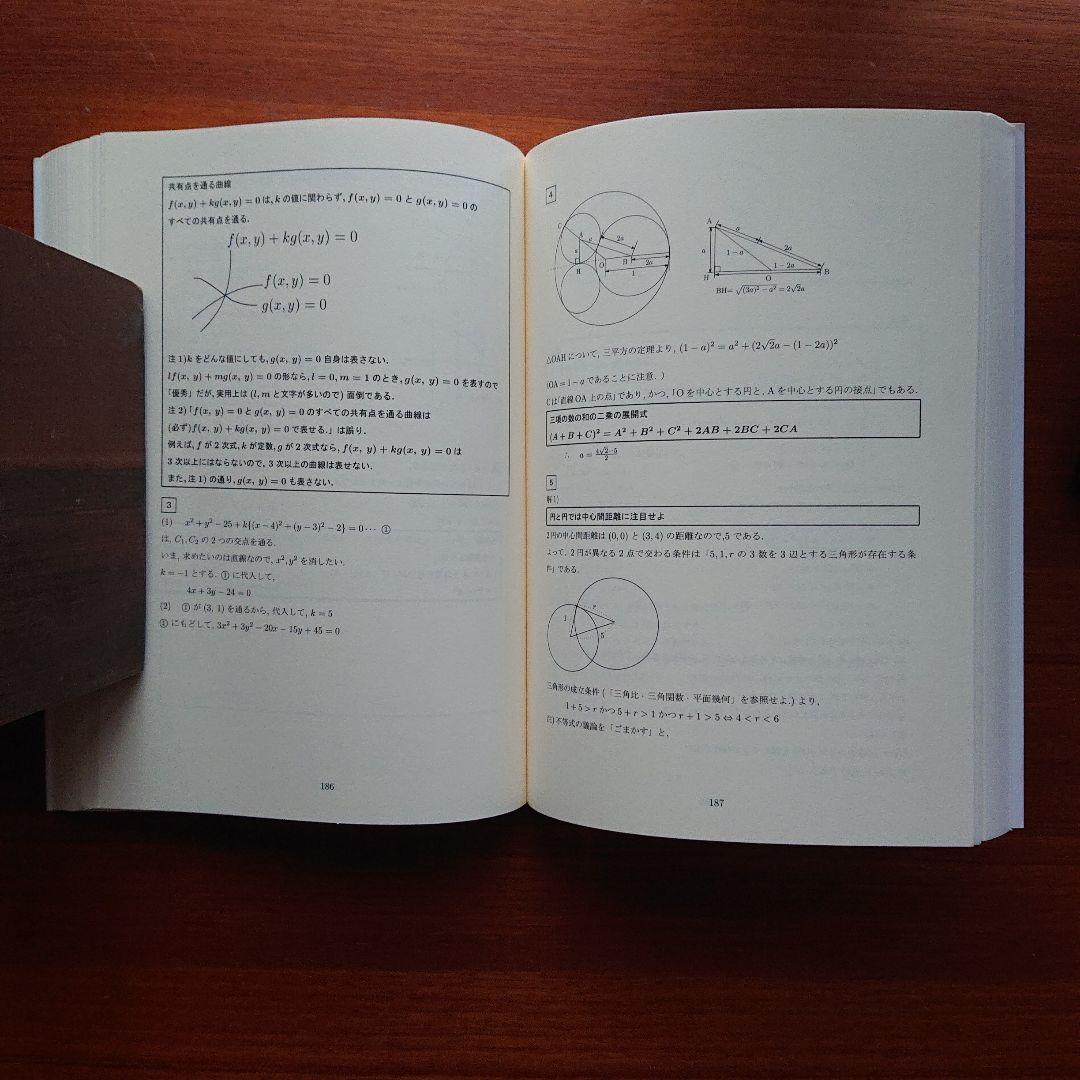 共有点を通る曲線
f(x, y) + kg(x, y) = 0 は, k の値に関わらず, f(x, y) = 0 と g(x, y) = 0 の
すべての共有点を通る.
f(x, y) + kg(x, y) = 0
f(x, y) = 0
g(x, y) = 0
注 1)k をどんな値にしても, g(x, y) = 0 自身は表さない.
lf(x, y) + mg(x, y) = 0 の形なら, l = 0, m = 1 のとき, g(x, y) = 0 を表すので
「優秀」だが, 実用上は (l, m と文字が多いので) 面倒である.
注 2)「f(x, y) = 0 と g(x, y) = 0 のすべての共有点を通る曲線は
(必ず)f(x, y) + kg(x, y) = 0 で表せる.」は誤り.
例えば, f が 2 次式, k が定数, g が 2 次式なら, f(x, y) + kg(x, y) = 0 は
3 次以上にはならないので, 3 次以上の曲線は表せない.
また, 注 1) の通り, g(x, y) = 0 も表さない.
3
(1) x² + y² − 25 + k{(x − 4)² + (y − 3)² − 2} = 0 ⋯ ①
は, C₁, C₂ の 2 つの交点を通る.
いま, 求めたいのは直線なので, x², y² を消したい.
k = −1 とする. ① に代入して,
4x + 3y − 24 = 0
(2) ① が (3, 1) を通るから, 代入して, k = 5
① にもどして, 3x² + 3y² − 20x − 15y + 45 = 0
186
4
C
A
a
2a
a
H
O
B
2a
1
A
a
2a
a
1 − a
1 − 2a
H
O
B
BH= √(3a)² − a² = 2√2a
△OAH について, 三平方の定理より, (1 − a)² = a² + (2√2a − (1 − 2a))²
(OA = 1 − a であることに注意. )
C は「直線 OA 上の点」であり, かつ, 「O を中心とする円と, A を中心とする円の接点」でもある.
三項の数の和の二乗の展開式
(A + B + C)² = A² + B² + C² + 2AB + 2BC + 2CA
∴ a = (4√2−5)/2
5
解 1)
円と円では中心間距離に注目せよ
2 円の中心間距離は (0, 0) と (3, 4) の距離なので, 5 である.
よって, 2 円が異なる 2 点で交わる条件は「5, 1, r の 3 数を 3 辺とする三角形が存在する条
件」である.
1
r
5
三角形の成立条件 (「三角比・三角関数・平面幾何」を参照せよ.) より,
1 + 5 > r かつ 5 + r > 1 かつ r + 1 > 5 ⇔ 4 < r < 6
注) 不等式の議論を「ごまかす」と,
187